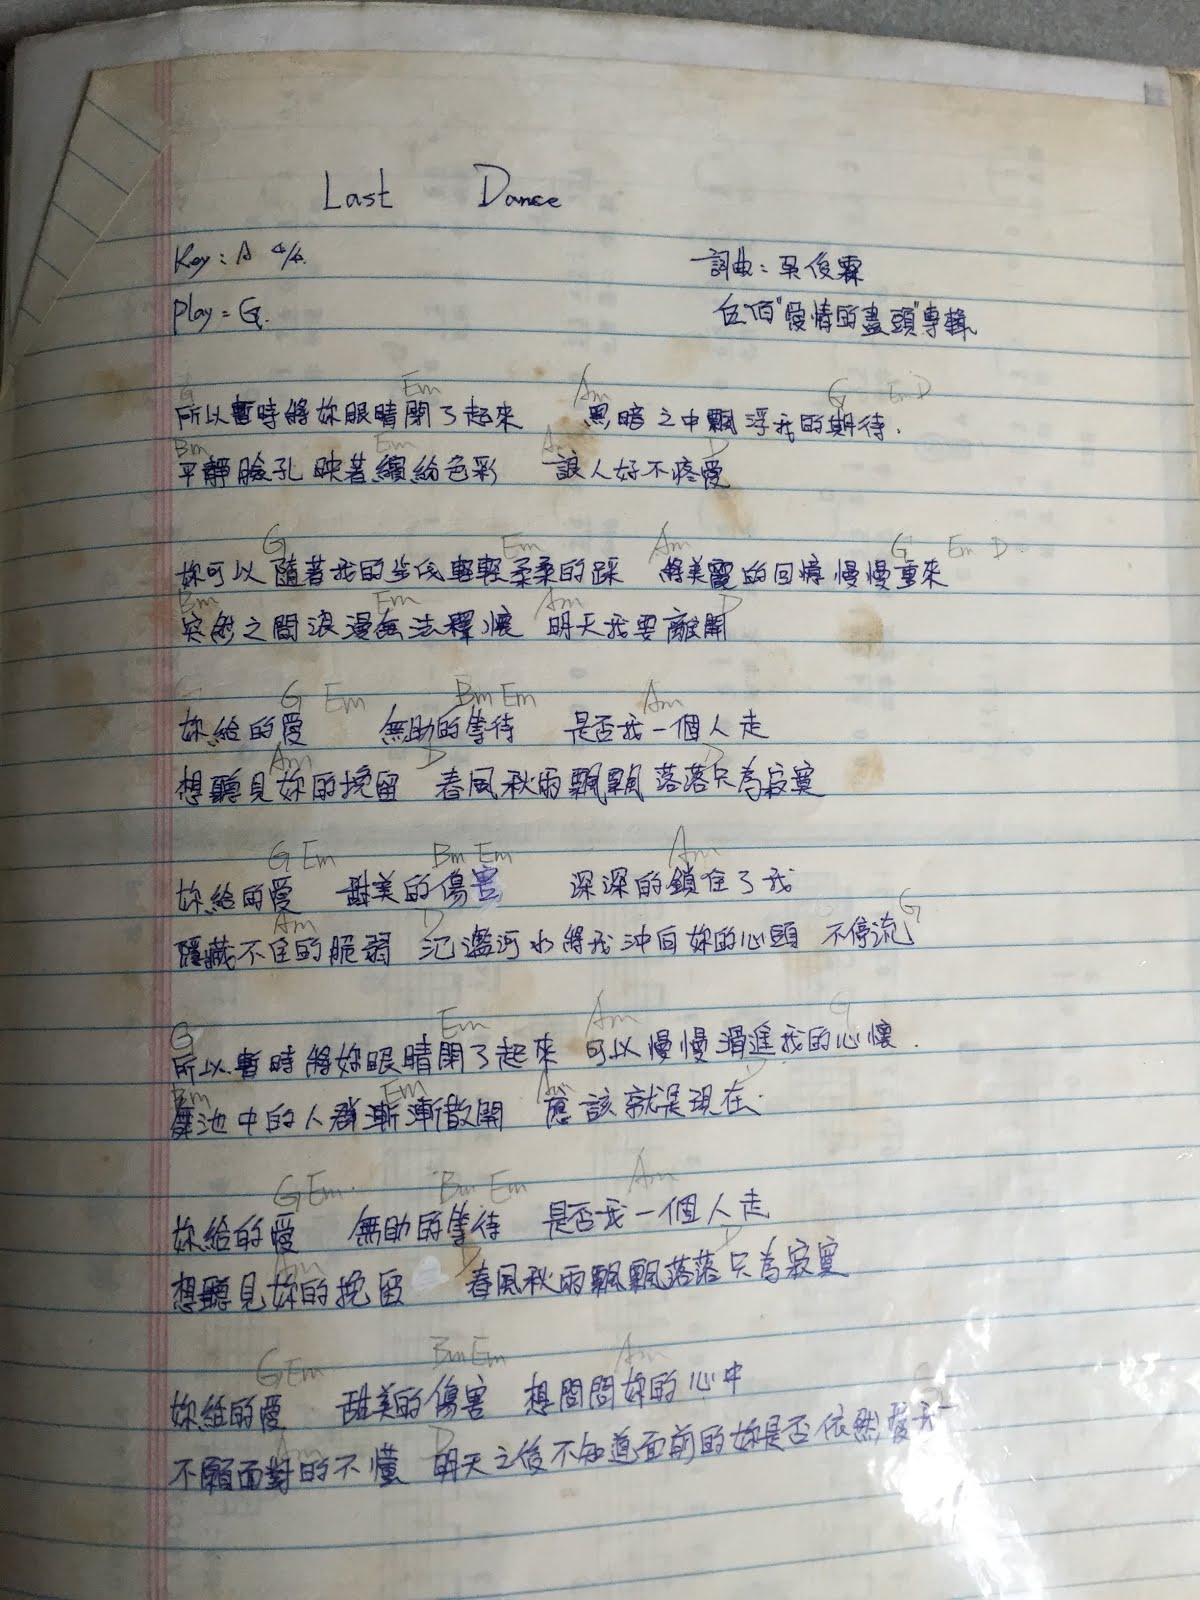 Last Dance
Key: A 4/4.
詞曲: 吳俊霖
Play = G.
伍佰"愛情的盡頭"專輯
G Em Am G Em D
所以暫時將妳眼睛閉了起來 黑暗之中飄浮我的期待.
Bm Em Am D
平靜臉孔映著繽紛色彩 讓人好不疼愛
G Em Am G Em D
妳可以隨著我的步伐輕輕柔柔的踩 將美麗的回憶慢慢重來
Bm Em Am D
突然之間浪漫無法釋懷 明天我要離開
G Em Bm Em Am
妳給的愛 無助的等待 是否我一個人走
Am D D
想聽見妳的挽留 春風秋雨飄飄落落只為寂寞
G Em Bm Em Am
妳給的愛 甜美的傷害 深深的鎖住了我
Am D G
隱藏不住的脆弱 氾濫河水將我沖向妳的心頭 不停流
G Em Am G
所以暫時將妳眼睛閉了起來 可以慢慢滑進我的心懷.
Bm Em Am D
舞池中的人群漸漸散開 應該就是現在.
G Em Bm Em Am
妳給的愛 無助的等待 是否我一個人走
Am D D
想聽見妳的挽留 春風秋雨飄飄落落只為寂寞
G Em Bm Em Am
妳給的愛 甜美的傷害 想問問妳的心中
Am D G
不願面對的不懂 明天之後不知道面前的妳是否依然愛我